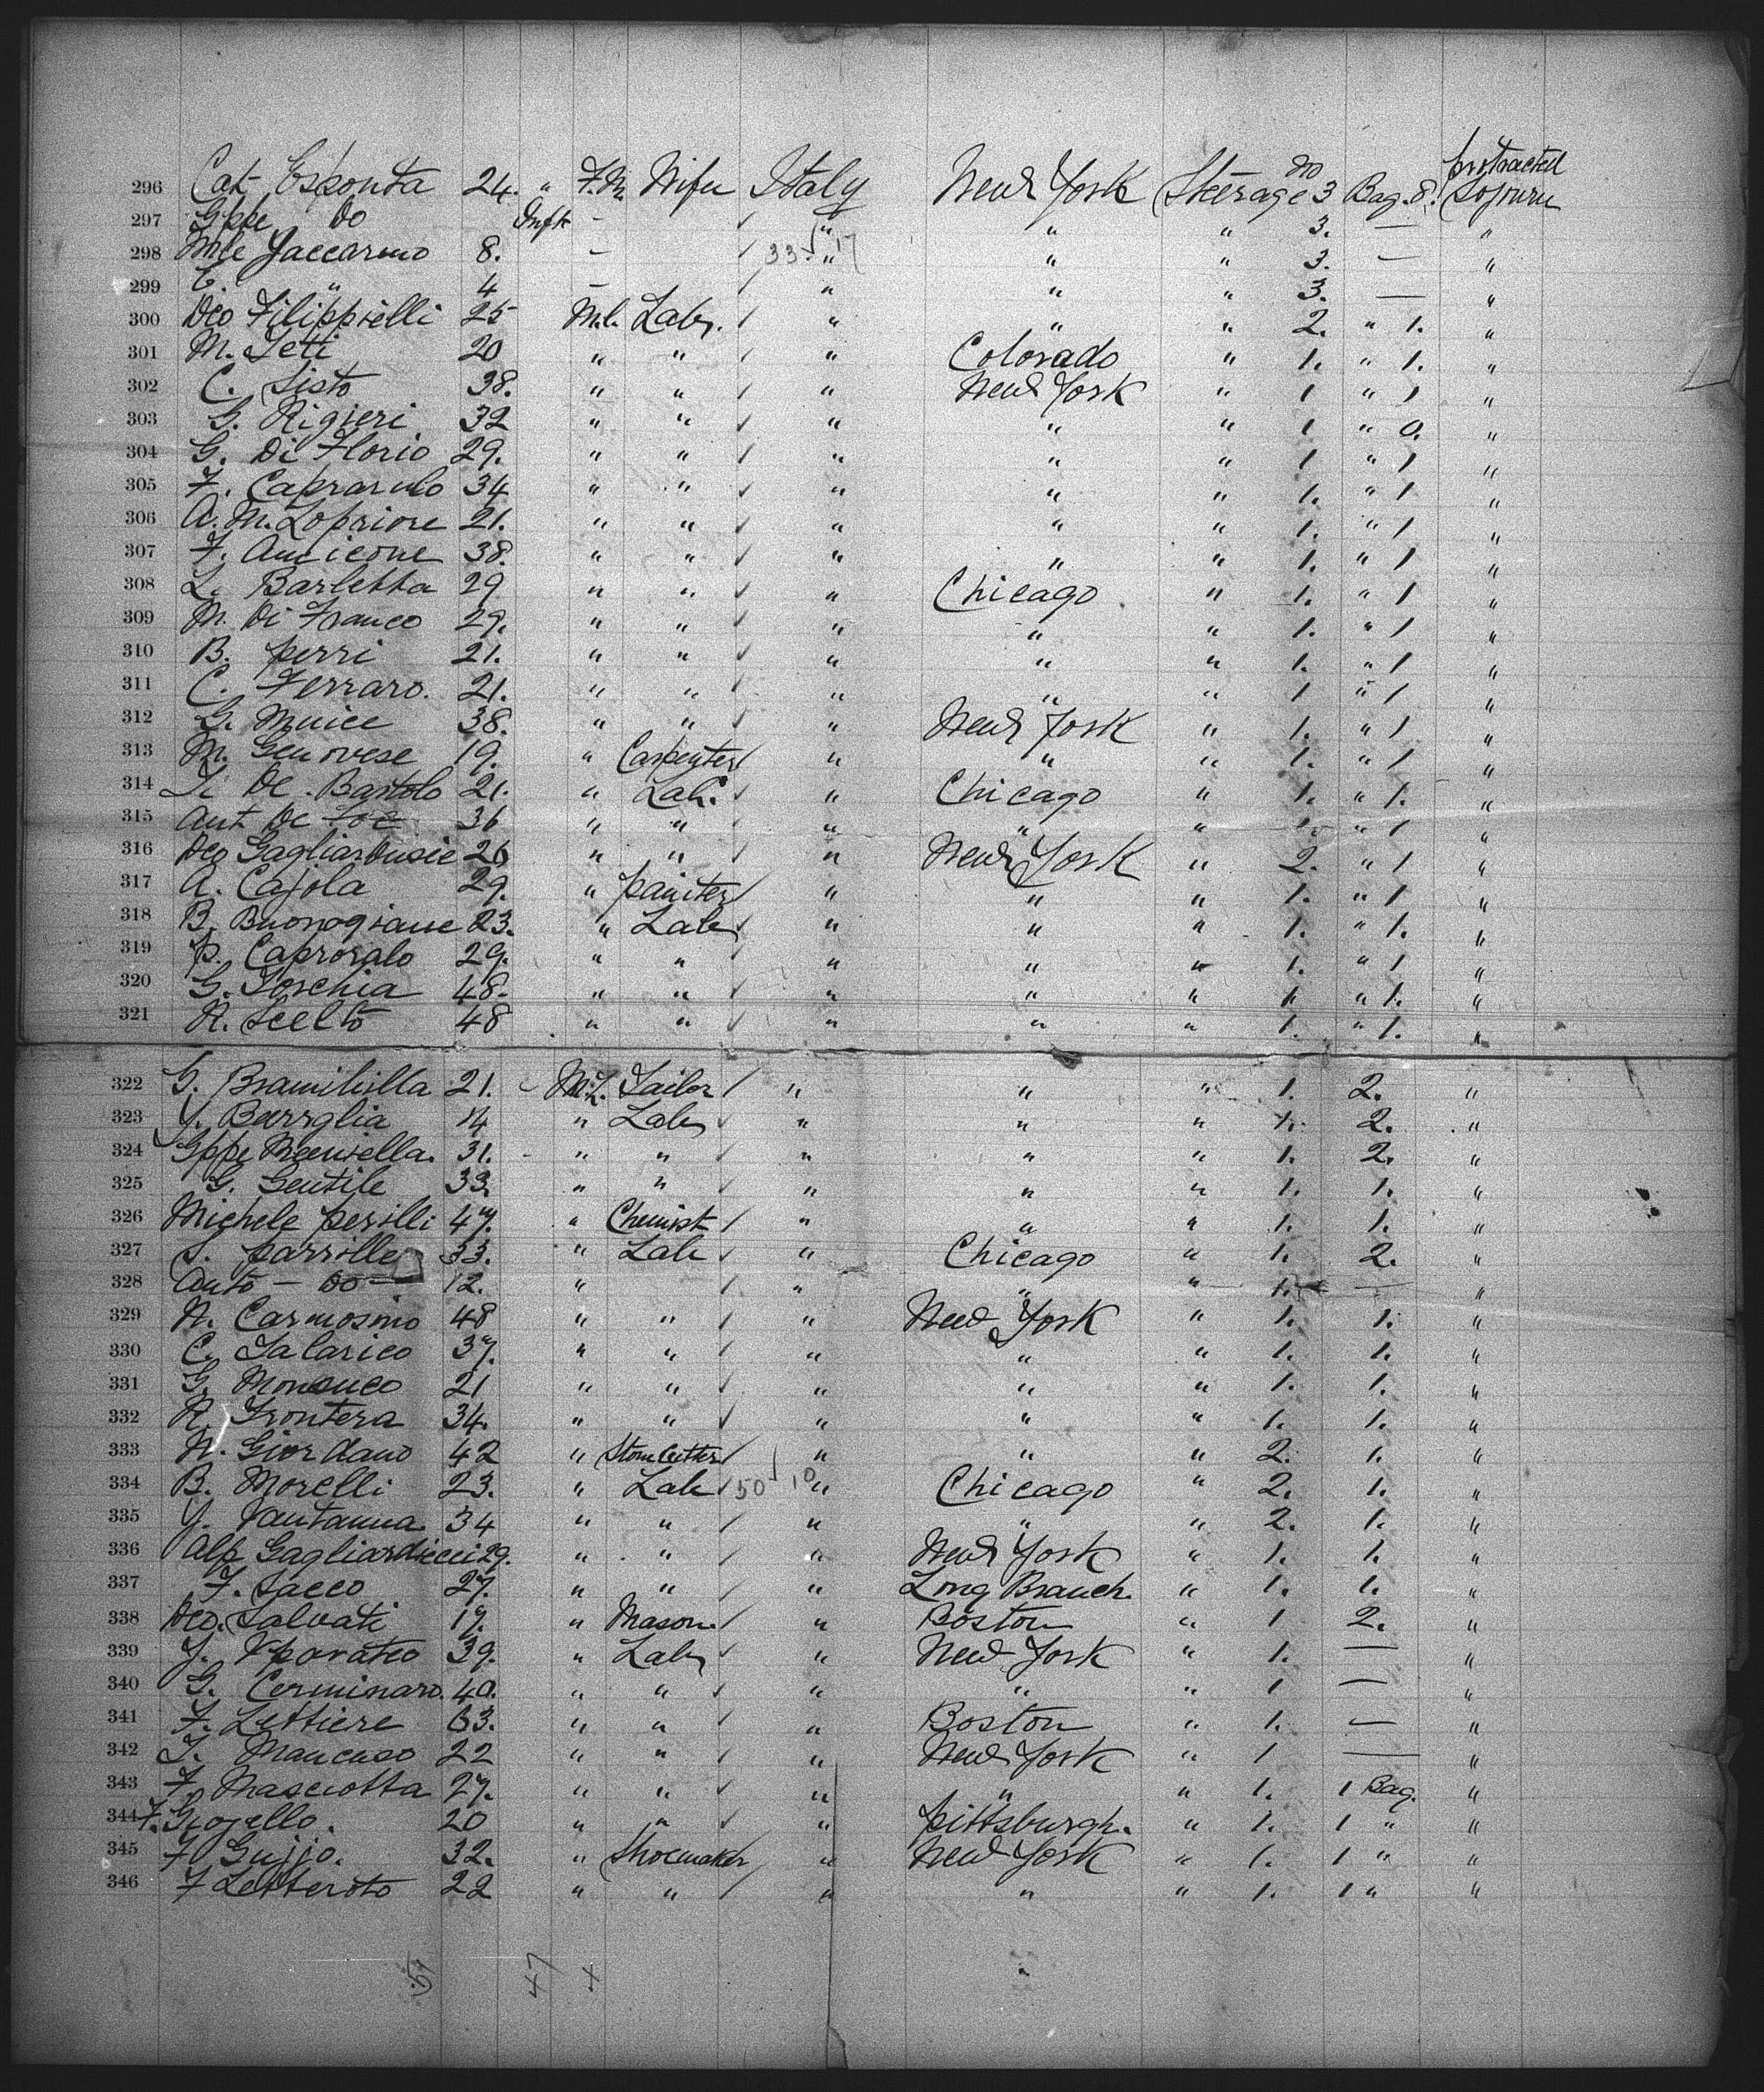 296 Cat Esponta 24. " F.M. Wife Italy New York Steerage No 3 Bag. 8. protracted sojourn
297 Gppe Do Inft - " " " 3. — "
298 Mle Jaccarino 8. - 33 17 " " " 3. — "
299 C. " 4 - " " " 3. — "
300 Dco Filippielli 25 M.l. Labr. " " " 2. " 1. "
301 M. Seti 20 " " " Colorado " 1. " 1. "
302 C. Sisto 38. " " " New York " 1 " 1 "
303 G. Rigieri 32 " " " " " 1 " 0. "
304 G. Di Florio 29. " " " " " 1 " 1 "
305 F. Caprarulo 34 " " " " " 1. " 1 "
306 A. M. Lopriore 21. " " " " " 1. " 1 "
307 F. Amicone 38. " " " " " 1. " 1 "
308 L. Barletta 29 " " " Chicago " 1. " 1 "
309 M. Di Franco 29. " " " " " 1. " 1 "
310 B. Perri 21. " " " " " 1. " 1 "
311 C. Ferraro. 21. " " " " " 1 " 1 "
312 G. 38. " " " New York " 1. " 1 "
313 M. Genovese 19. " Carpenter " " " 1. " 1 "
314 De Bartolo 21. " Labr. " Chicago " 1. " 1. "
315 Ant De 36 " " " " " 1. " 1 "
316 Dco 26 " " " New York " 2. " 1 "
317 A. Cajola 29. " painter " " " 1. " 1 "
318 B. 23. " Labr " " " 1. " 1. "
319 P. Caproralo 29. " " " " " 1. " 1 "
320 G. 48. " " " " " 1. " 1. "
321 R. Scelto 48 " " " " " 1. " 1. "
322 G. 21. - M.l. Tailor " " " 1. 2. "
323 14 " Labr " " " 1. 2. "
324 Gppe 31. - " " " " " 1. 2. "
325 G. Gentile 33. " " " " " 1. 1. "
326 Michele Perilli 47. " Chemist " " " 1. 1. "
327 33. " Labr " Chicago " 1. 2. "
328 Anto — Do — 12. " " " " 1. — "
329 N. Carmosino 48 " " " New York " 1. 1. "
330 C. Talarico 37. " " " " " 1. 1. "
331 G. 21 " " " " " 1. 1. "
332 R. Frontera 34. " " " " " 1. 1. "
333 N. Giordano 42 " Stonecutter " " " 2. 1. "
334 B. Morelli 23. " Labr 50 10 " Chicago " 2. 1. "
335 34 " " " " " 2. 1. "
336 Alf 29. " " " New York " 1. 1. "
337 F. Sacco 27. " " " Long Branch. " 1. 1. "
338 Dco. Salvati 17. " Mason. " Boston " 1 2. "
339 39. " Labr " New York " 1. — "
340 G. Cerminaro. 40. " " " " " 1 — "
341 F. Lettiere 63. " " " Boston " 1. — "
342 Mancuso 22 " " " New York " 1 — "
343 F. Masciotta 27. " " " " " 1. 1 Bag. "
344 F. 20 " " " Pittsburgh. " 1. 1 " "
345 F 32. " Shoemaker " New York " 1. 1 " "
346 F Letteroto 22 " " " " " 1. 1 " "
47